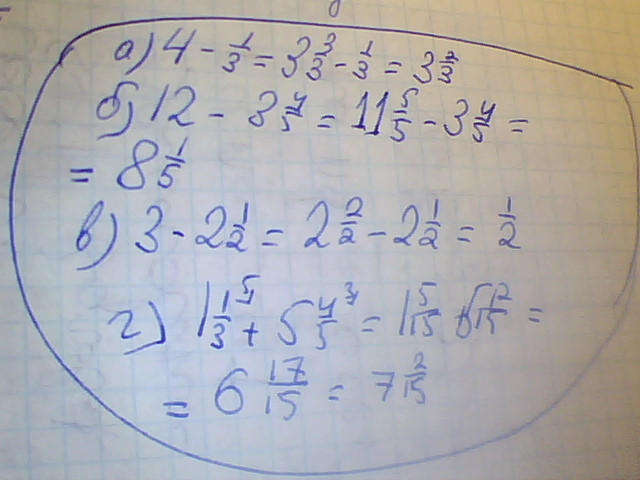 а) 4 - 1/3 = 3 3/3 - 1/3 = 3 2/3
б) 12 - 3 4/5 = 11 5/5 - 3 4/5 =
= 8 1/5
в) 3 - 2 1/2 = 2 2/2 - 2 1/2 = 1/2
г) 1 1/3 ⁵ + 5 4/5 ³ = 1 5/15 + 5 12/15 =
= 6 17/15 = 7 2/15